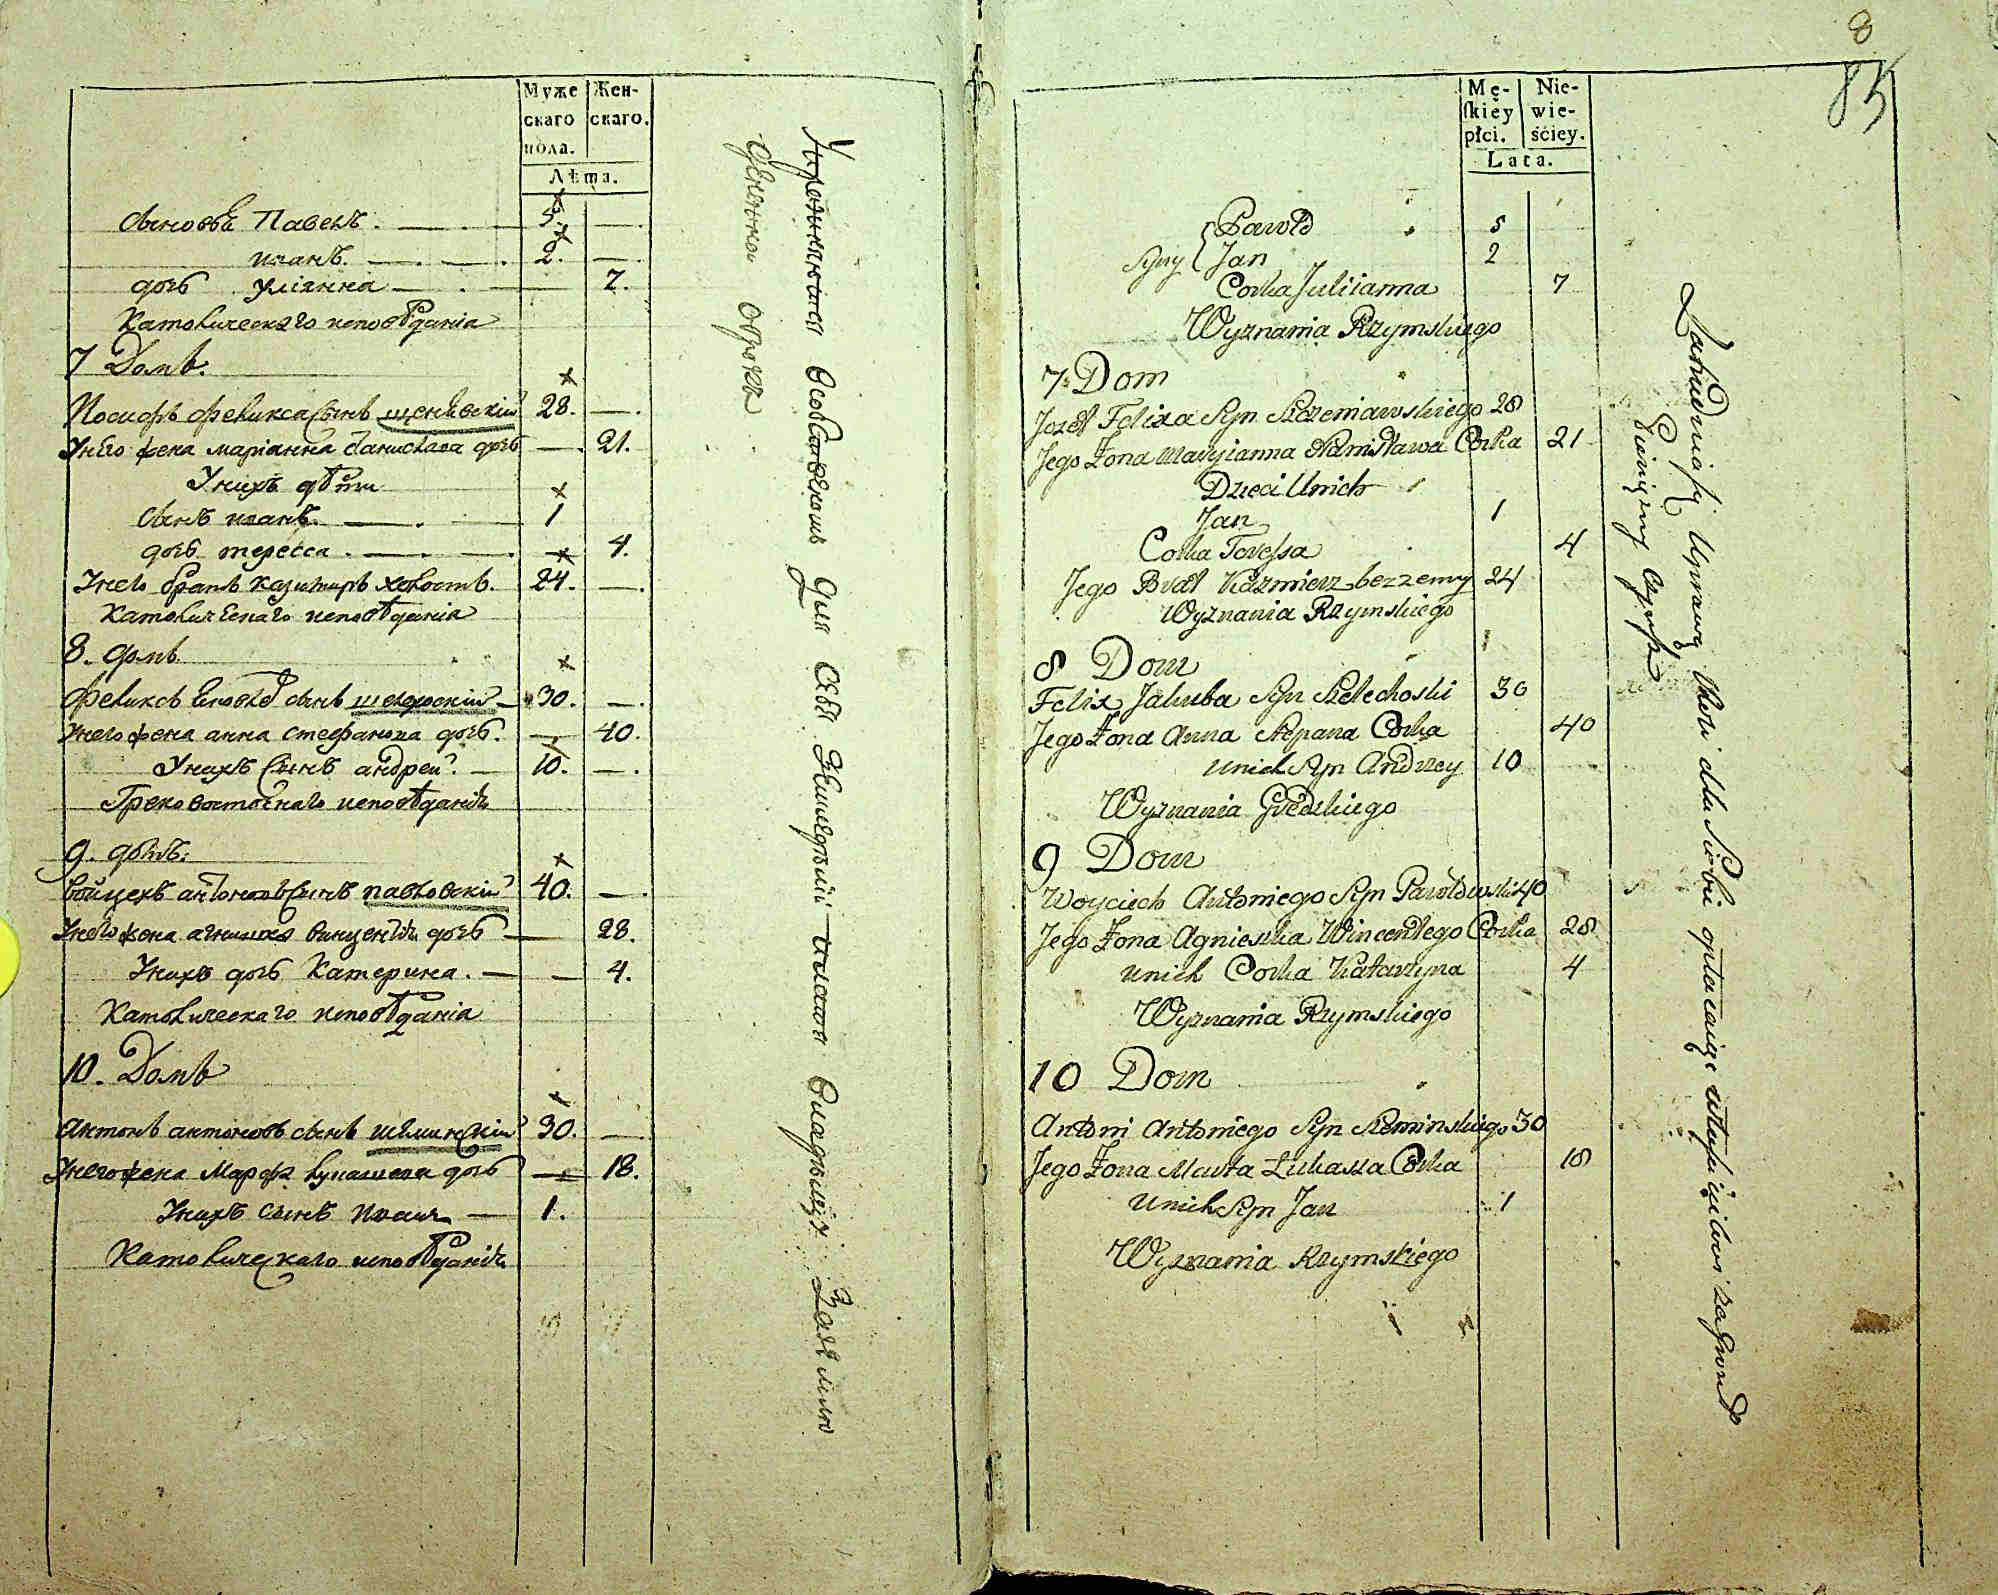 Муже
скаго
пола.
Жен-
скаго.
Лѣта.
сыновья Павелъ. 5.
иванъ. 2.
дочь улiянна 7.
Католическаго исповѣданiя
7 Домъ.
Иосифъ феликса сынъ 28.
Унего жена марiанна станислава дочь 21.
Унихъ дѣти
сынъ иванъ. 1
дочь тересса. 4.
Унего братъ казимиръ холостъ. 24.
католическаго исповѣданiя
8. домъ
феликсъ сынъ 30.
Унего жена анна стефанова дочь. 40.
Унихъ сынъ андрей. 10.
Греко восточнаго исповѣданiя
9. домъ:
войцехъ антоновъ сынъ павловскiй 40.
Унего жена винцентiя дочь 28.
Унихъ дочь Катерина. 4.
Католическаго исповѣданiя
10. Домъ
Антонъ антоновъ сынъ 30.
Унего жена Марфа лукашева дочь 18.
Унихъ сынъ иванъ 1.
Католическаго исповѣданiя
Упражняются для себя платя владѣльцу
оброкъ
8
85
Mę-
skiéy
płci.
Nie-
wie-
ściey.
Lata.
Paweł 5
Syny Jan 2
Corka Juliianna 7
Wyznania Rzymskiego
7 Dom
Jozef Felixa Syn Szczeniawskiego 28
Jego Żona Maryianna Stanisława Corka 21
Dzieci Unich
Jan 1
Corka Teressa 4
Jego Brat Kazmierz bezzenny 24
Wyznania Rzymskiego
8 Dom
Felix Jakuba Syn Szelechoski 30
Jego Żona Anna Stepana Corka 40
Unich Syn Andrzey 10
Wyznania Greckiego
9 Dom
Woyciech Antoniego Syn Pawłowski 40
Jego Żona Agnieszka Wincentego Corka 28
Unich Corka Katarzyna 4
Wyznania Rzymskiego
10 Dom
Antoni Antoniego Syn Szeminskiego 30
Jego Żona Marta Łukasza Corka 18
Unich Syn Jan 1
Wyznania Rzymskiego
Zatrudniaią Uprawą Roli dla Siebie opłacaiąc
Pieniężny Czynsz